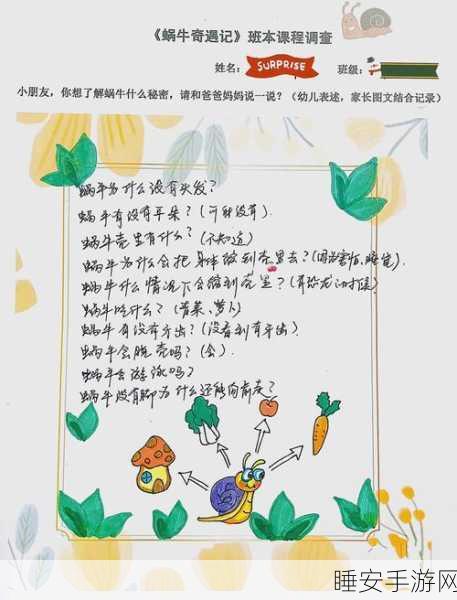 《蜗牛奇遇记》班本课程调查
姓名： SURPRISE 班级：
小朋友，你想了解蜗牛什么秘密，请和爸爸妈妈说一说？（幼儿表述，家长图文结合记录）
蜗牛为什么没有头发？
蜗牛有没有耳朵？（可能没有）.
蜗牛壳里有什么？（不知道）
蜗牛为什么会把身体缩到壳里去？（因为害怕、睡觉）.
蜗牛什么情况下会缩到壳里？（
蜗牛吃什么？（青菜、萝卜）
蜗牛有没有牙齿？（没看到有牙齿）
蜗牛会脱壳吗？（会）.
蜗牛会游泳吗？
蜗牛没有脚为什么还能向前爬？
睡安手游网